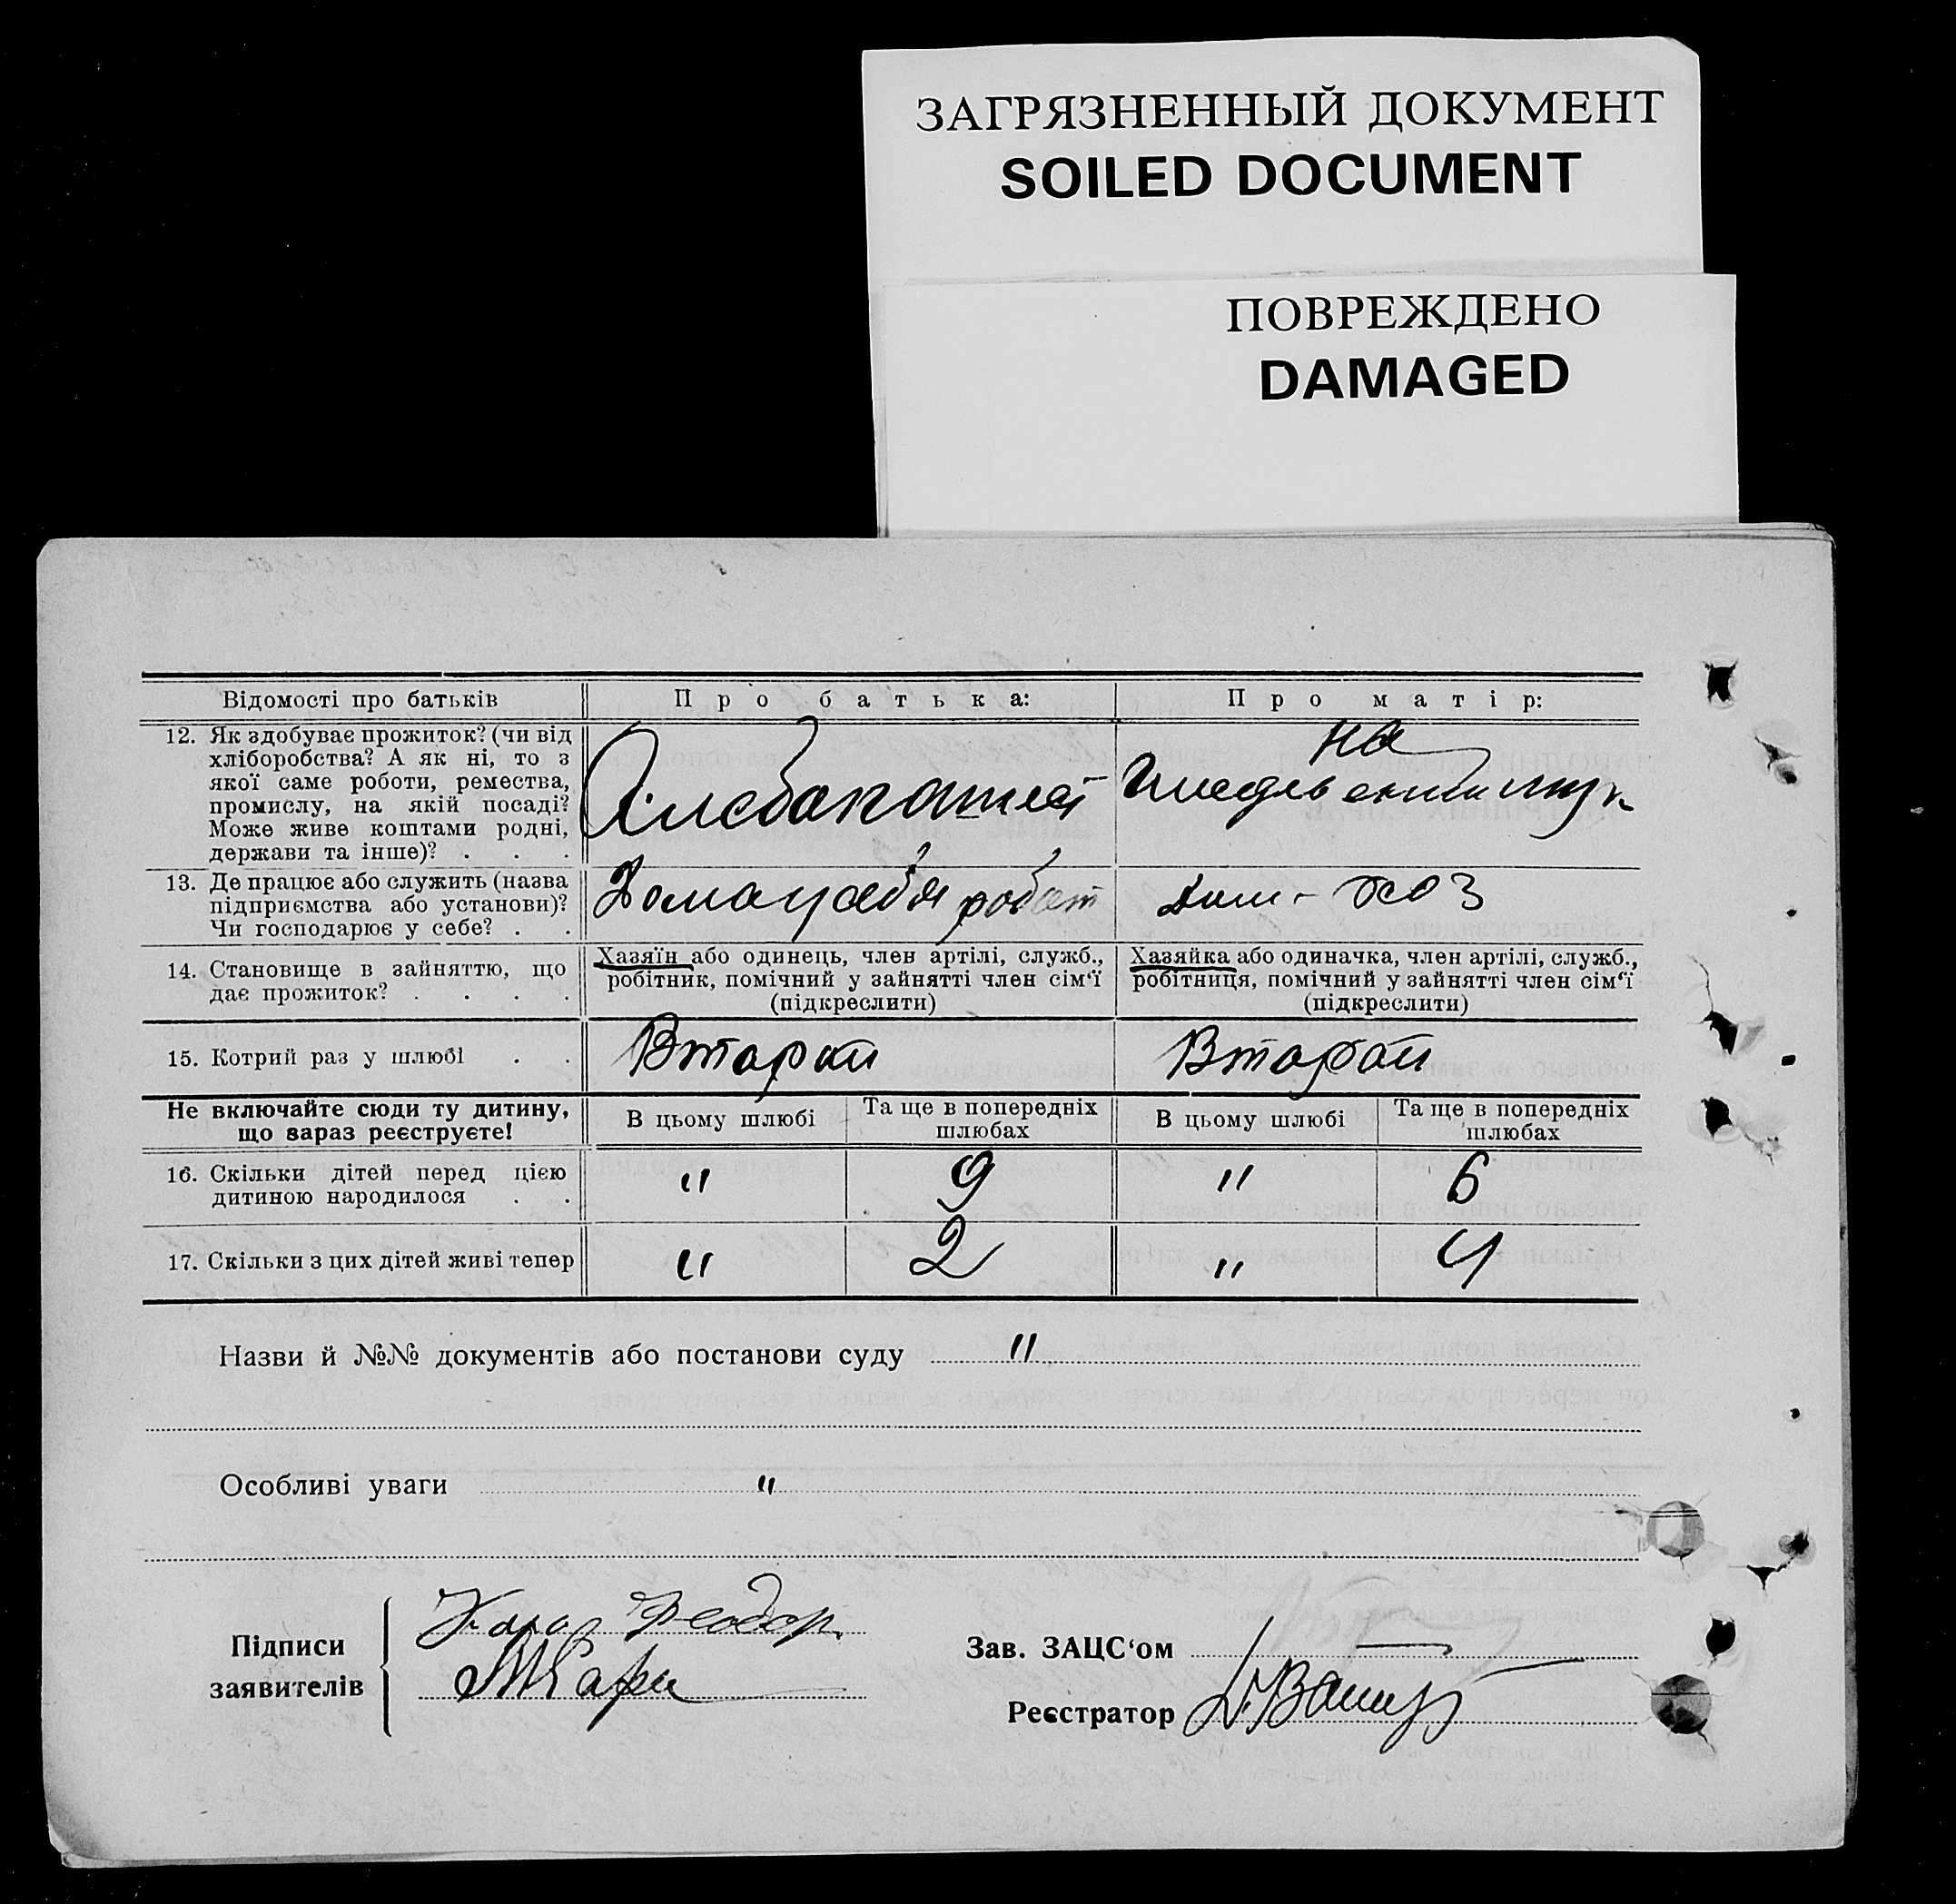 ЗАГРЯЗНЕННЫЙ ДОКУМЕНТ
SOILED DOCUMENT
ПОВРЕЖДЕНО
DAMAGED
Відомості про батьків
Про батька:
Про матір:
12. Як здобуває прожиток? (чи від
хліборобства? А як ні, то з
якої саме роботи, ремества,
промислу, на якій посаді?
Може живе коштами родні,
держави та інше)? . . .
на
13. Де працює або служить (назва
підприємства або установи)?
Чи господарює у себе? . .
Дома у себя
Дом-хоз
14. Становище в зайняттю, що
дає прожиток? . . . .
Хазяїн або одинець, член артілі, служб.,
робітник, помічний у зайнятті член сім'ї
(підкреслити)
Хазяйка або одиначка, член артілі, служб.,
робітниця, помічний у зайнятті член сім'ї
(підкреслити)
15. Котрий раз у шлюбі . .
Второй
Второй
Не включайте сюди ту дитину,
що зараз реєструєте!
В цьому шлюбі
Та ще в попередніх
шлюбах
В цьому шлюбі
Та ще в попередніх
шлюбах
16. Скільки дітей перед цією
дитиною народилося . .
"
9
"
6
17. Скільки з цих дітей живі тепер
"
2
"
4
Назви й №№ документів або постанови суду "
Особливі уваги "
Підписи
заявителів
Кара Феодор.
МКара
Зав. ЗАЦС'ом
Реєстратор